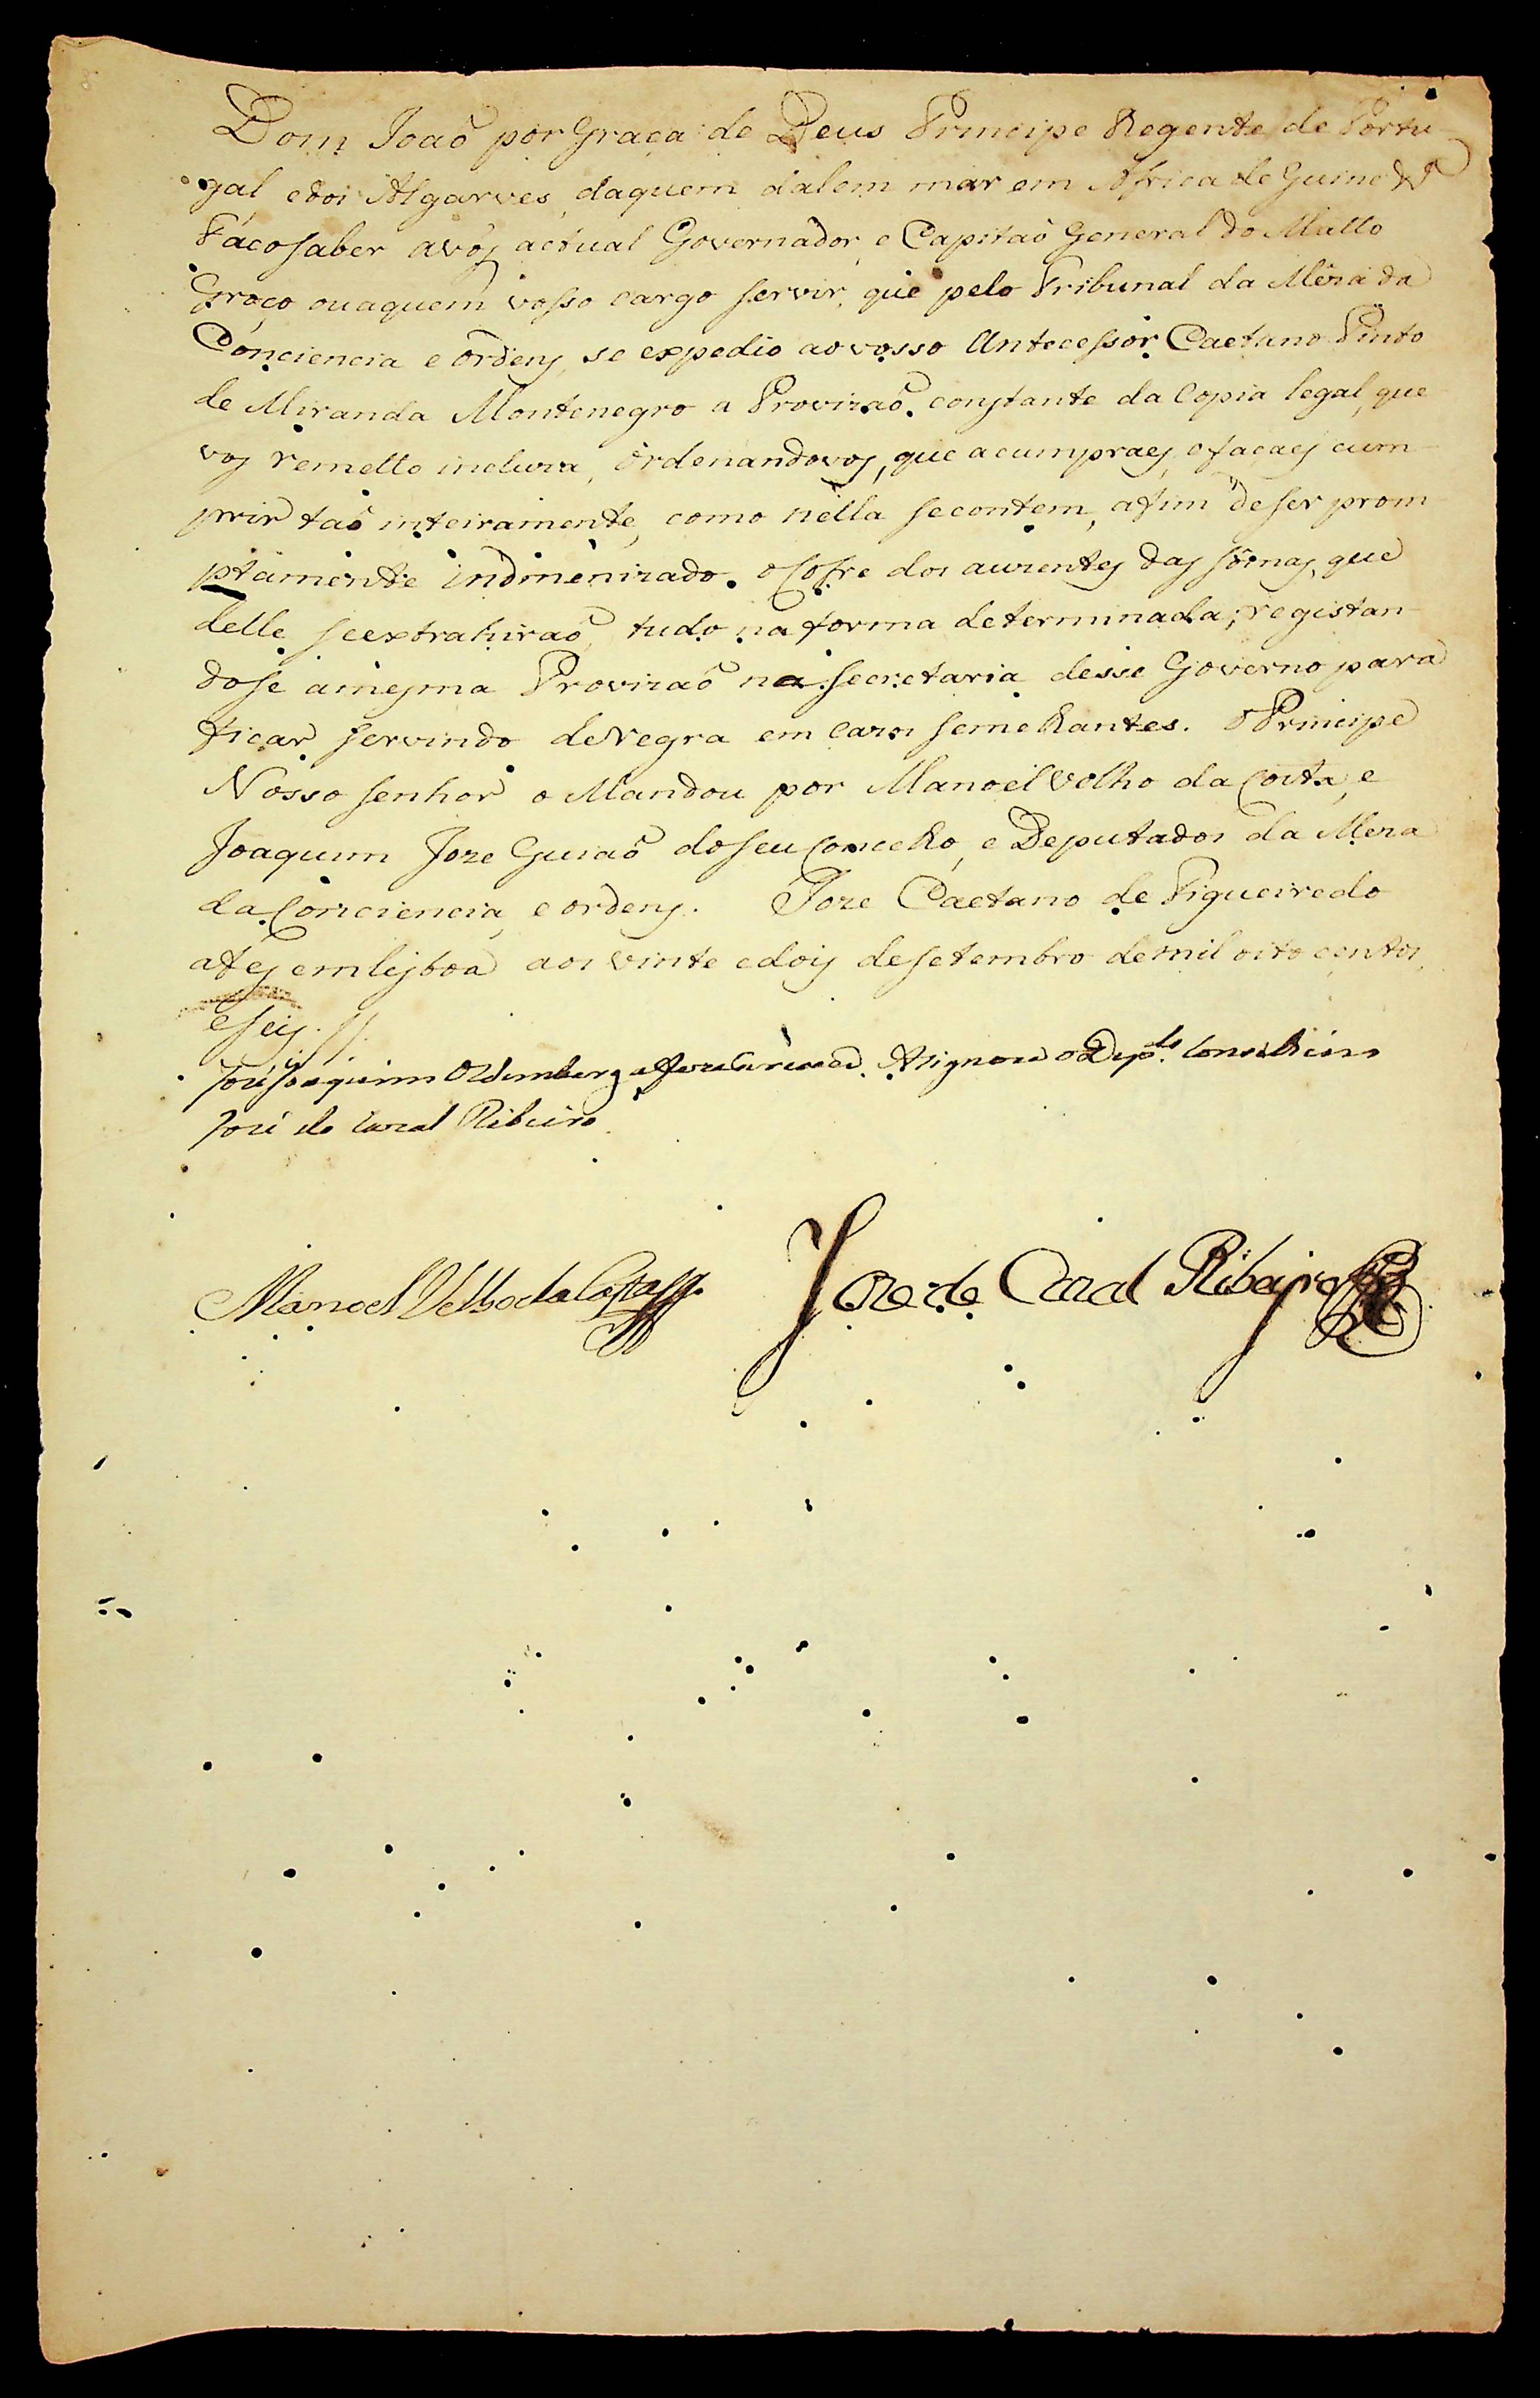 Dom Joaõ por Graça de Deus Principe Regente de Portu-
gal edos Algarves, daquem dalem mar em Africa de Guine &
Fáco saber avós actual Governador, e Capitaõ General do Matto
Groço ouaquem vosso cargo servir, que pelo Tribunal da Meza da
Conciencia e Ordens, se expedio ao vosso Antecessor Caetano Pinto
de Miranda Montenegro a Provizaõ constante da Copia legal, que
vos remetto incluza, ordenandovos, que acumpraes, efaçaes cum-
prir taõ inteiramente, como nella secontem, afim deser prom-
ptamente indmenizado o Cofre dos auzentes das somas, que
delle seextrahiraõ, tudo na forma determinada; registan-
dose amesma Provizaõ na secretaria desse Governo para
ficar servindo deregra em cazos semelhantes. O Principe
Nosso senhor o Mandou por Manoel Velho da Costa, e
Joaquim Joze Guiaõ doseu Concelho, e Deputados da Meza
da Conciencia, e ordens. Joze Caetano de Figueiredo
afes emlisboa aos vinte edois desetembro demil oito centos,
eseis.
José Joaquim Oldemberg afez escrever. Asignou o Dep.do Conselheiro
José de Cazal Ribeiro
Manoel Velho da Costa Joze de Cazal Ribeiro